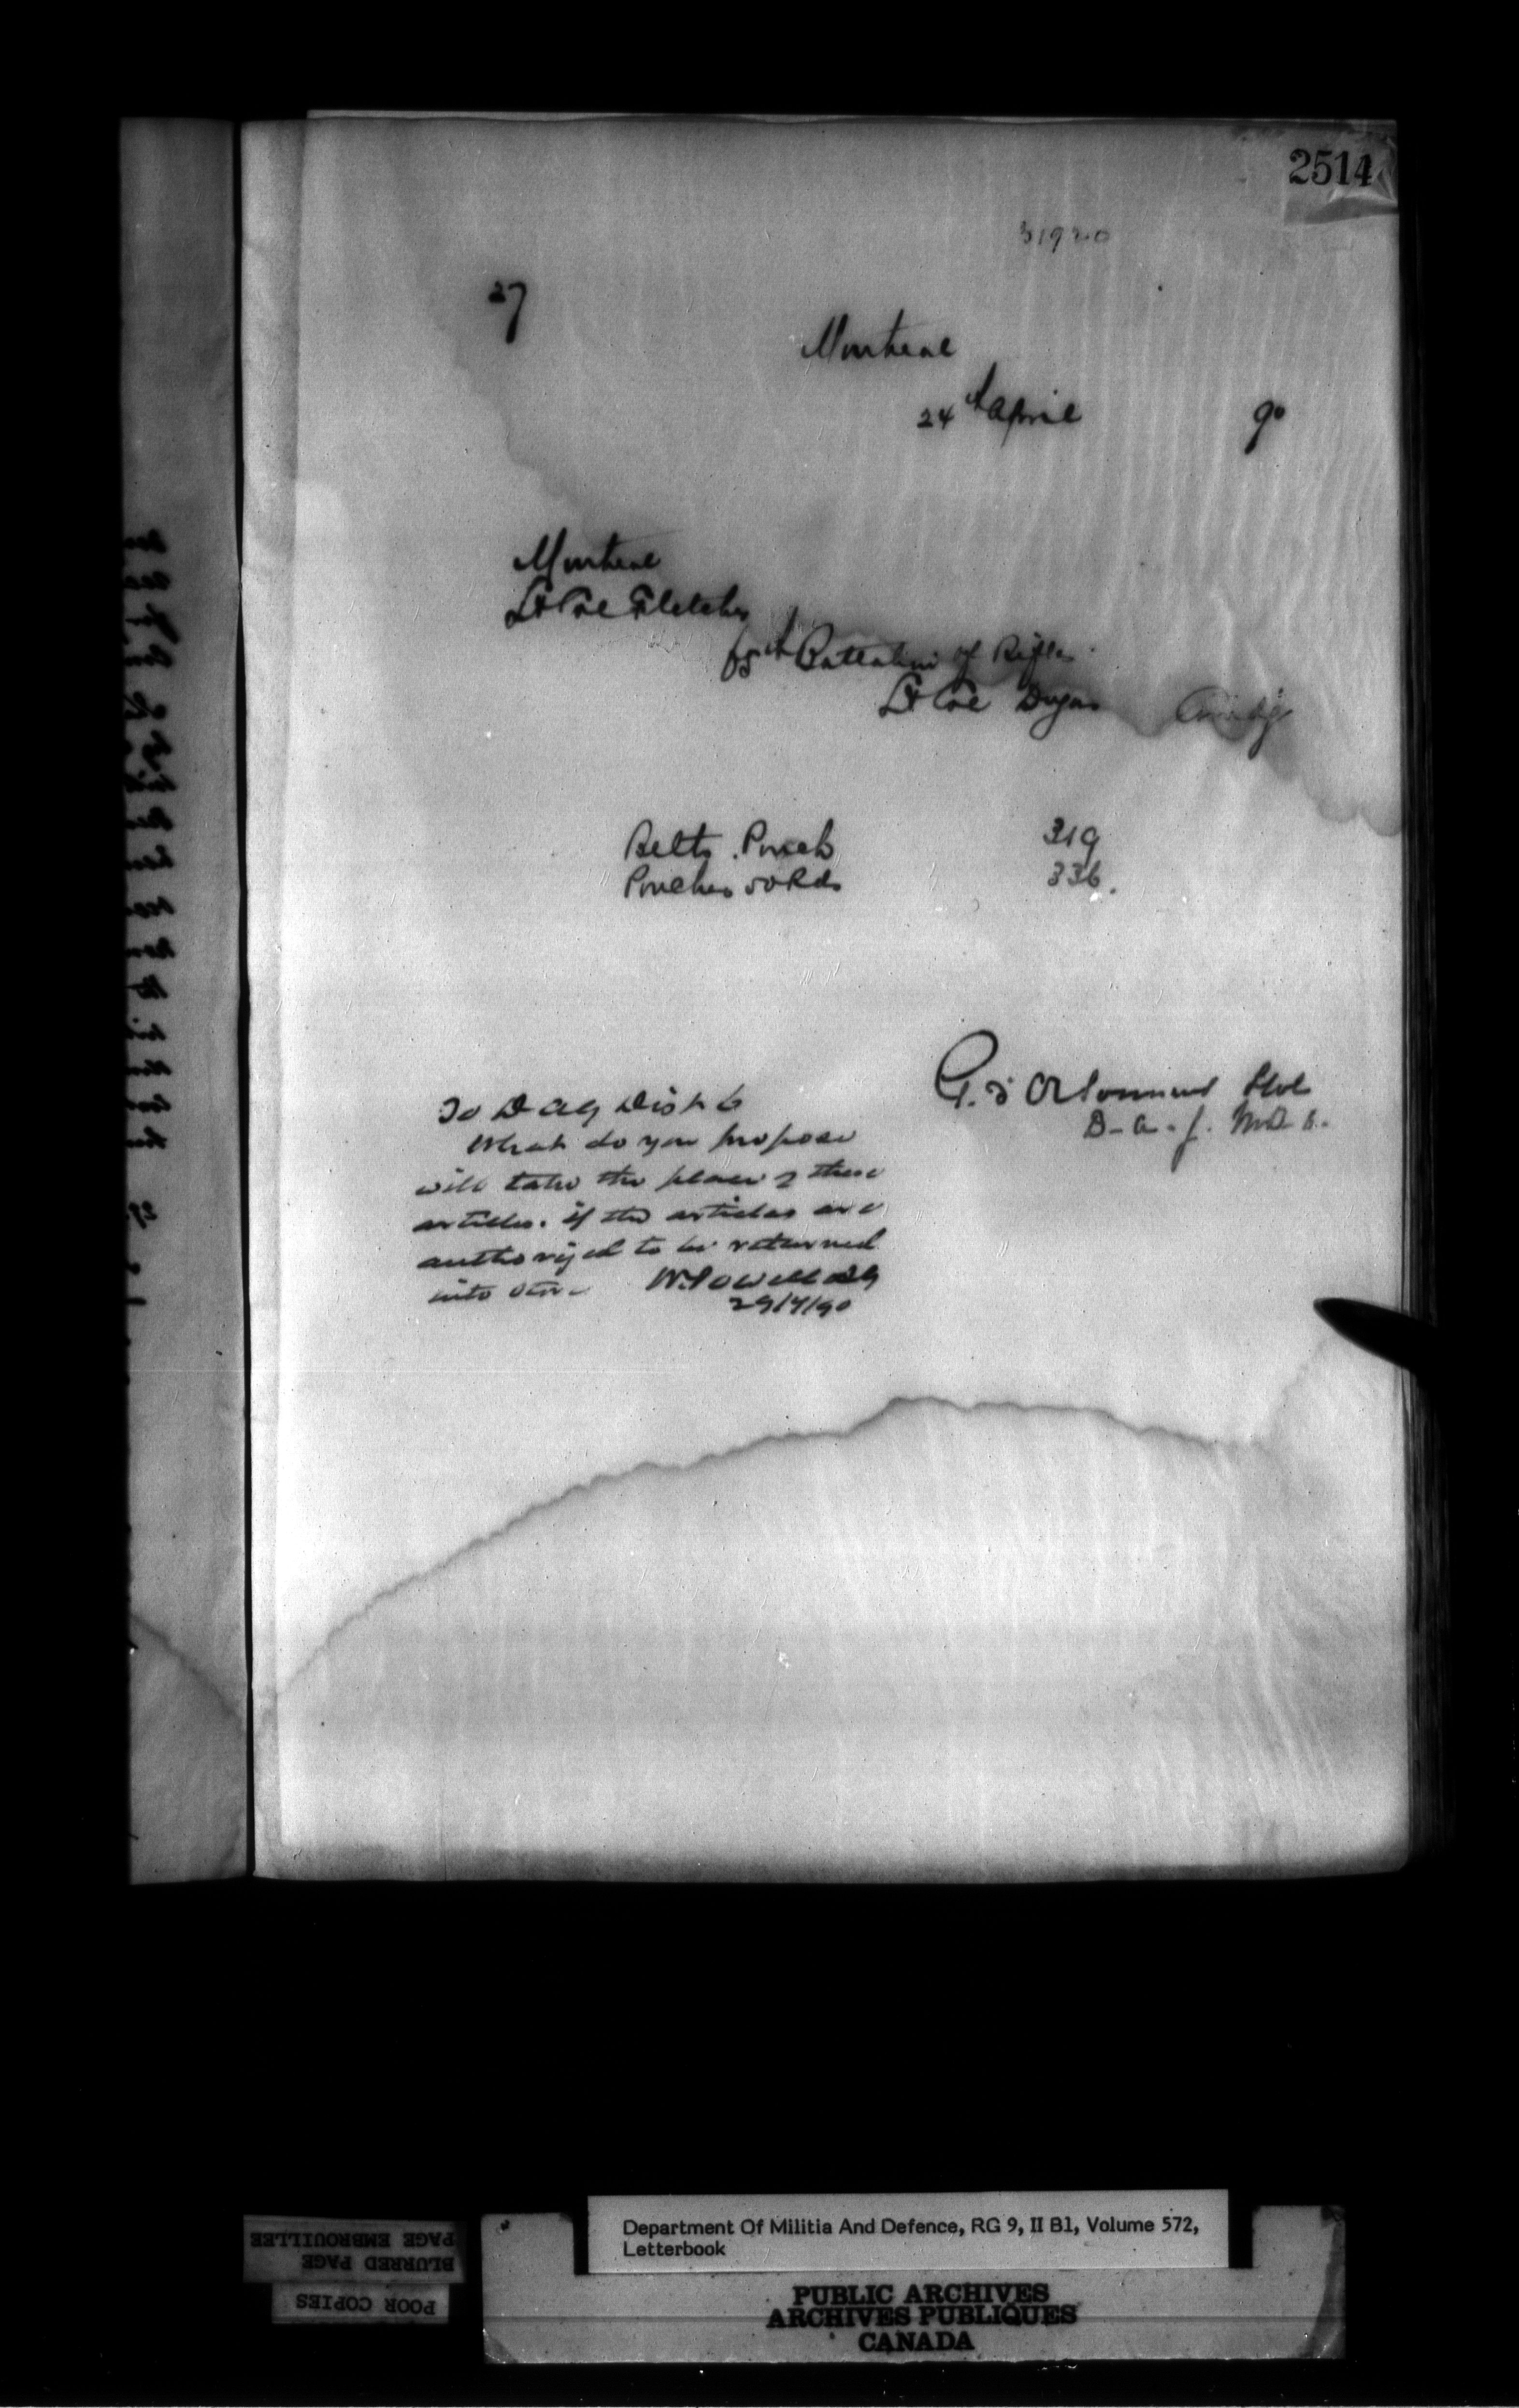 2514
31920
27
Montreal
24th April 90
Montreal
Lt Col Fletcher
65th Battalion of Rifles
Lt Col Dugas Comdg
Belts. Pouch 319
Pouches 50 Rds 336.
Lt Col
D-A-G. M.D. 6.
To D A G Dist 6
What do you propose
will take the place of these
articles. if the articles are
authorized to be returned
into store W. Powell AG
29/4/90
Department Of Militia And Defence, RG 9, II B1, Volume 572,
Letterbook
PAGE EMBROUILLEE
BLURRED PAGE
POOR COPIES
PUBLIC ARCHIVES
ARCHIVES PUBLIQUES
CANADA